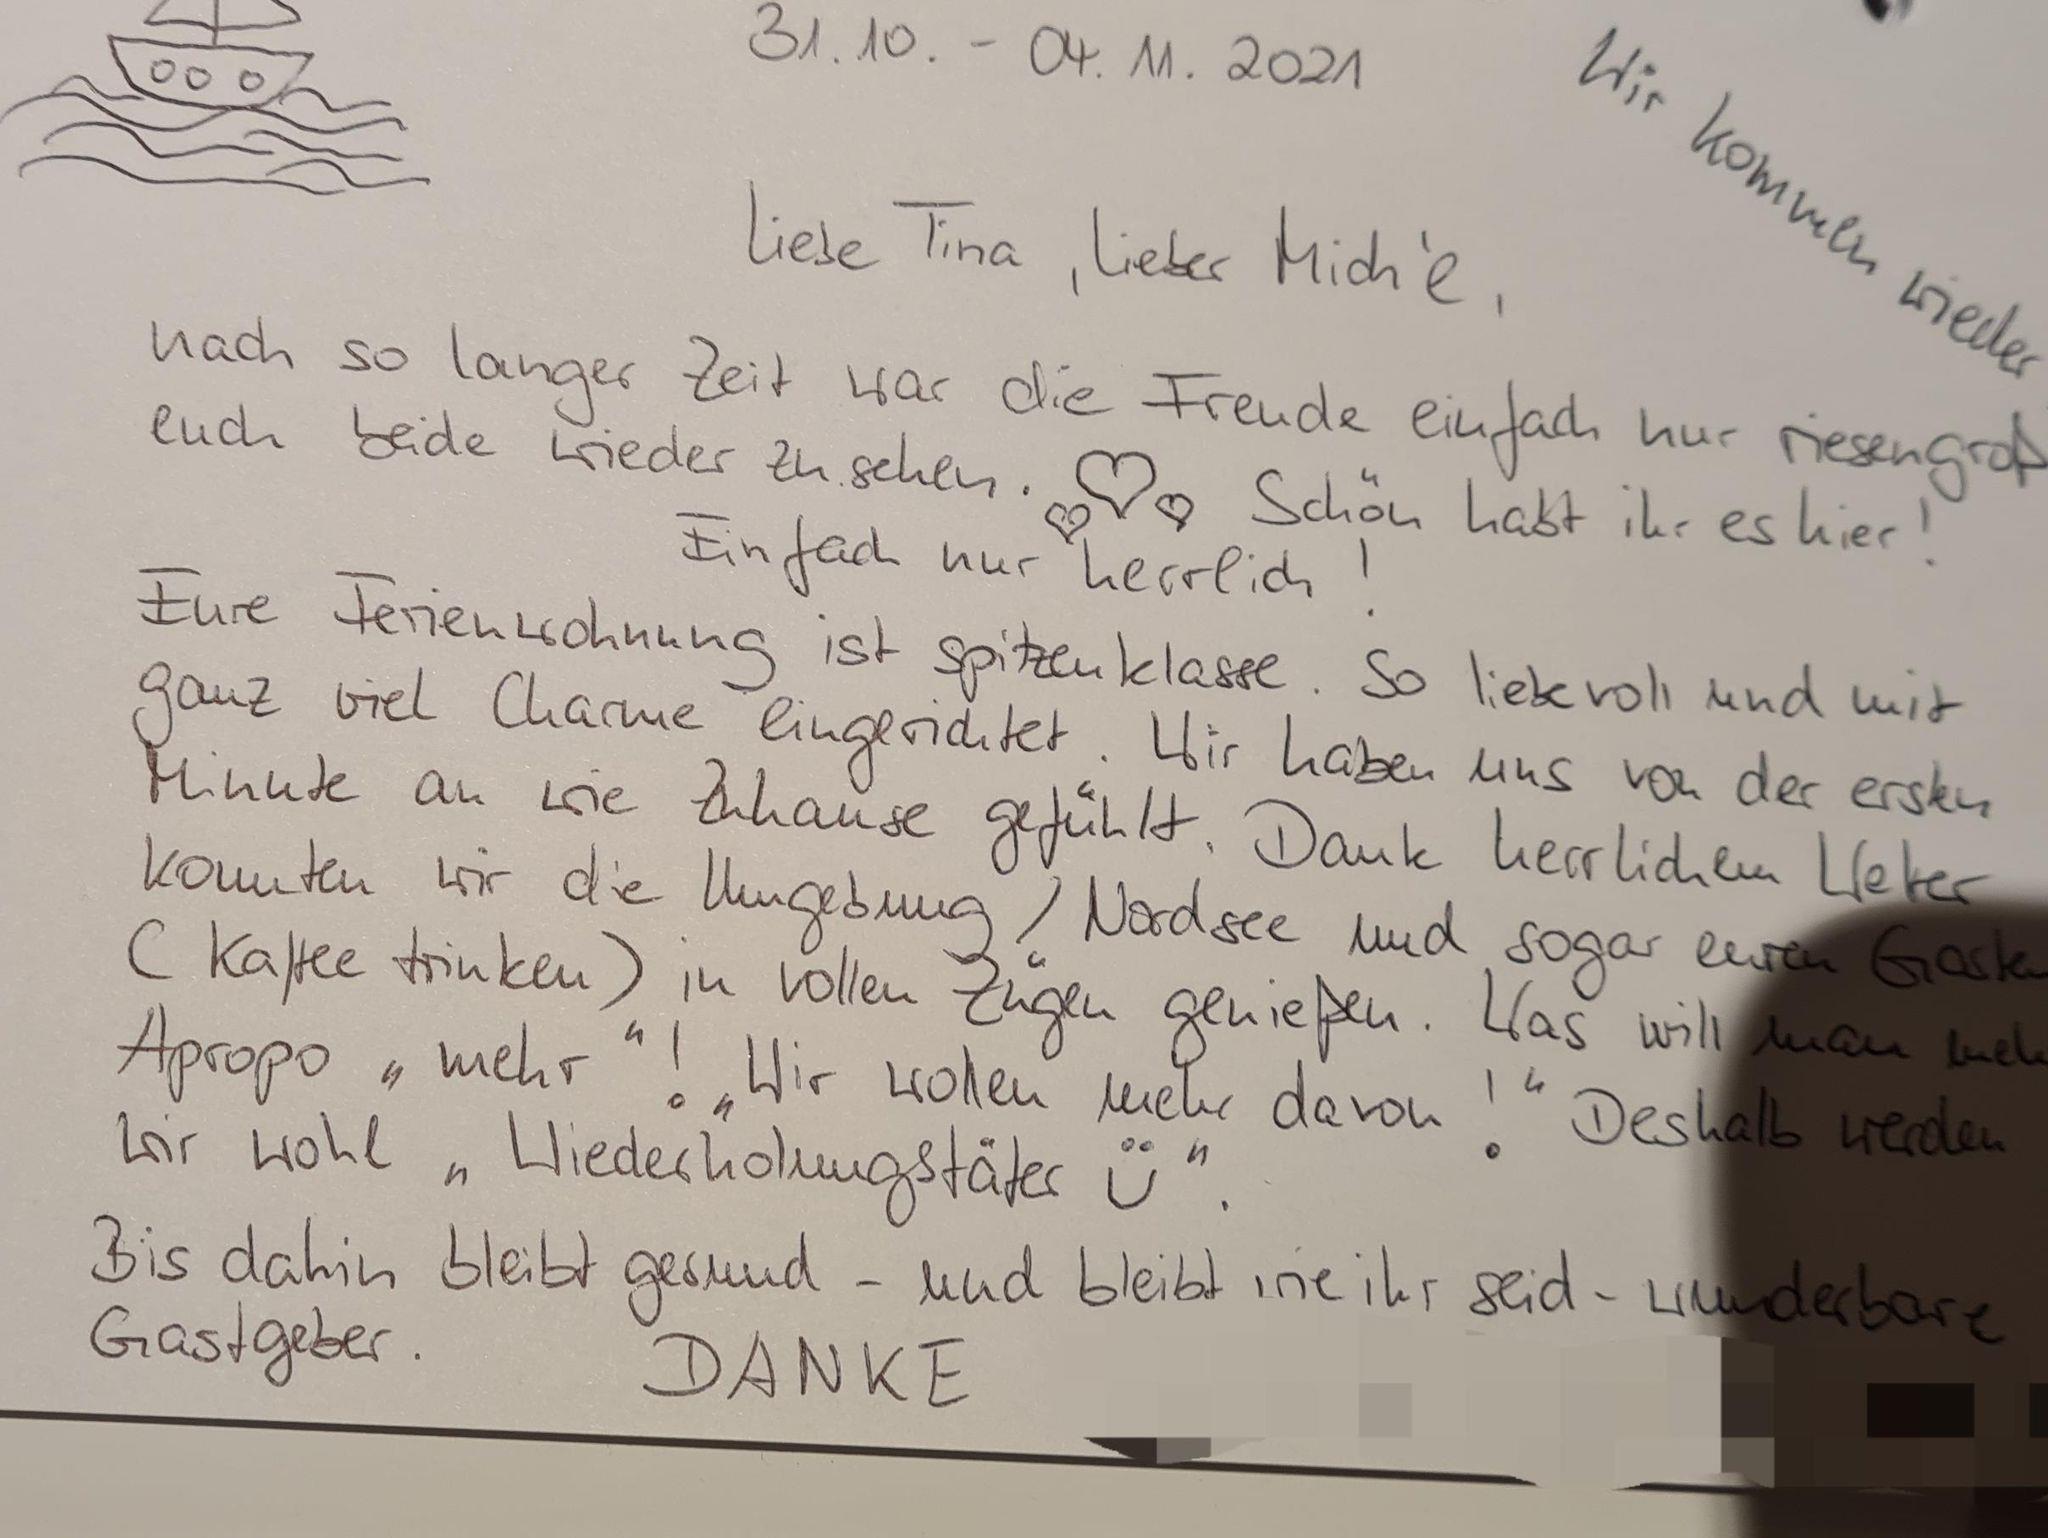 31.10. - 04.11.2021
Wir kommen wieder
Liebe Tina, lieber Mich'l,
nach so langer Zeit war die Freude einfach nur riesengroß
euch beide wieder zu sehen. Schön habt ihr es hier!
Einfach nur herrlich!
Eure Ferienwohnung ist spitzenklasse. So liebevoll und mit
ganz viel Charme eingerichtet. Wir haben uns von der ersten
Minute an wie Zuhause gefühlt. Dank herrlichem Wetter
konnten wir die Umgebung / Nordsee und sogar euren Garten
(Kaffee trinken) in vollen Zügen genießen. Was will man mehr
Apropo „mehr"! „Wir wollen mehr davon!" Deshalb werden
wir wohl „Wiederholungstäter Ü".
Bis dahin bleibt gesund - und bleibt wie ihr seid - wunderbare
Gastgeber. DANKE